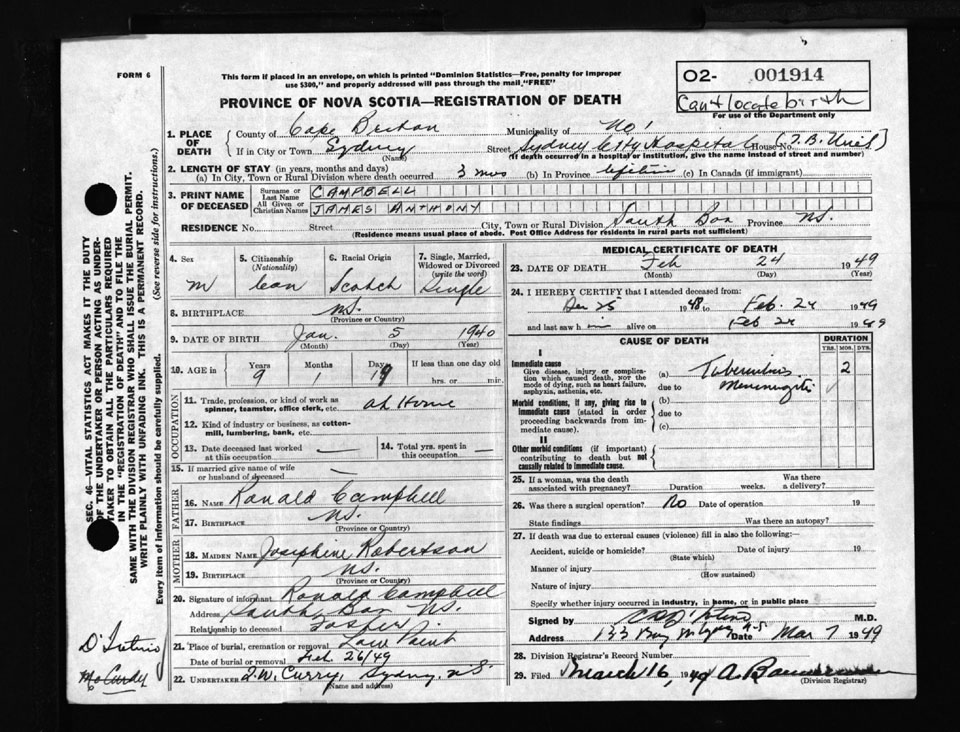 FORM 6
This form if placed in an envelope, on which is printed "Dominion Statistics—Free, penalty for improper
use $300," and properly addressed will pass through the mail "FREE"
O2- 001914
Can't locate birth
For use of the Department only
PROVINCE OF NOVA SCOTIA—REGISTRATION OF DEATH
1. PLACE OF DEATH
County of Cape Breton Municipality of No 1
If in City or Town Sydney Street Sydney City Hospital House No. (T.B. Unit)
(Name) (If death occurred in a hospital or institution, give the name instead of street and number)
2. LENGTH OF STAY (in years, months and days)
(a) In City, Town or Rural Division where death occurred 3 mos (b) In Province lifetime (c) In Canada (if immigrant)
3. PRINT NAME OF DECEASED
Surname or Last Name CAMPBELL
All Given or Christian Names JAMES ANTHONY
RESIDENCE No. Street City, Town or Rural Division South Bar Province N.S.
(Residence means usual place of abode. Post Office Address for residents in rural parts not sufficient)
4. Sex
M
5. Citizenship
(Nationality)
Can
6. Racial Origin
Scotch
7. Single, Married, Widowed or Divorced
(write the word)
Single
8. BIRTHPLACE N.S.
(Province or Country)
9. DATE OF BIRTH Jan. 5 1940
(Month) (Day) (Year)
10. AGE in Years Months Days If less than one day old
9 1 19 hrs. or min.
OCCUPATION
11. Trade, profession, or kind of work as
spinner, teamster, office clerk, etc. at Home
12. Kind of industry or business, as cotton-
mill, lumbering, bank, etc.
13. Date deceased last worked at this occupation —
14. Total yrs. spent in this occupation —
15. If married give name of wife
or husband of deceased —
FATHER
16. NAME Ronald Campbell
17. BIRTHPLACE N.S.
(Province or Country)
MOTHER
18. MAIDEN NAME Josephine Robertson
19. BIRTHPLACE N.S.
(Province or Country)
20. Signature of informant Ronald Campbell
Address South Bar N.S.
Relationship to deceased Father
21. Place of burial, cremation or removal Low Point
Date of burial or removal Feb 26/49
22. UNDERTAKER T.W. Curry, Sydney, N.S.
(Name and address)
MEDICAL CERTIFICATE OF DEATH
23. DATE OF DEATH Feb 24 1949
(Month) (Day) (Year)
24. I HEREBY CERTIFY that I attended deceased from:
Dec 25 1948 to Feb. 24 1949
and last saw him alive on Feb 24 1949
CAUSE OF DEATH
DURATION
YRS. MOS. DYS.
I
Immediate cause
Give disease, injury or complica-
tion which caused death, NOT the
mode of dying, such as heart failure,
asphyxia, asthenia, etc.
(a) Tuberculous 2
due to Meningitis
Morbid conditions, if any, giving rise to
immediate cause (stated in order
proceeding backwards from im-
mediate cause).
(b)
due to
(c)
II
Other morbid conditions (if important)
contributing to death but not
causally related to immediate cause.
25. If a woman, was the death
associated with pregnancy? Duration weeks. Was there a delivery?
26. Was there a surgical operation? No Date of operation 19
State findings Was there an autopsy?
27. If death was due to external causes (violence) fill in also the following:—
Accident, suicide or homicide? Date of injury 19
(State which)
Manner of injury
(How sustained)
Nature of injury
Specify whether injury occurred in industry, in home, or in public place
Signed by M.D.
Address 133 Date Mar 7 1949
28. Division Registrar's Record Number
29. Filed March 16, 1949 A.
(Division Registrar)
SEC. 46—VITAL STATISTICS ACT MAKES IT THE DUTY
OF THE UNDERTAKER OR PERSON ACTING AS UNDER-
TAKER TO OBTAIN ALL THE PARTICULARS REQUIRED
IN THE "REGISTRATION OF DEATH" AND TO FILE THE
SAME WITH THE DIVISION REGISTRAR WHO SHALL ISSUE THE BURIAL PERMIT.
WRITE PLAINLY WITH UNFADING INK. THIS IS A PERMANENT RECORD.
Every item of information should be carefully supplied. (See reverse side for instructions.)
McCurdy